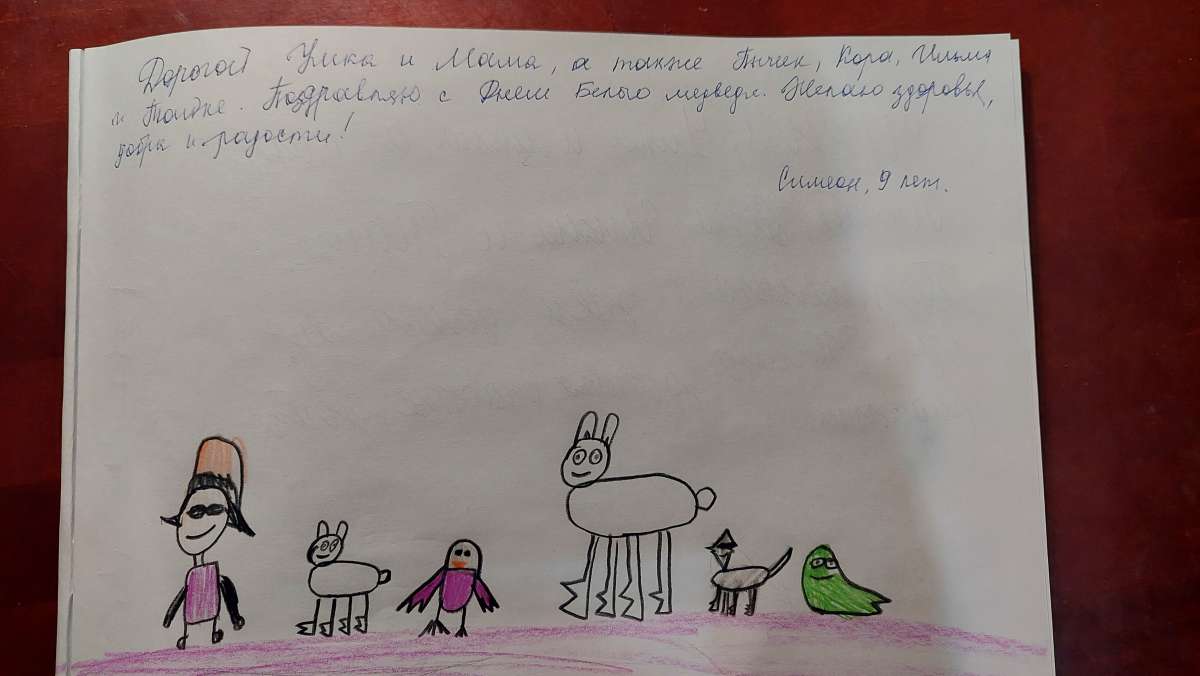 Дорогой Умка и Мама, а также Пнчик, Кора, Ишма
и Тоидне. Поздравляю с Днем Белого медведя. Желаю здоровья,
добра и радости!
Симеон, 9 лет.